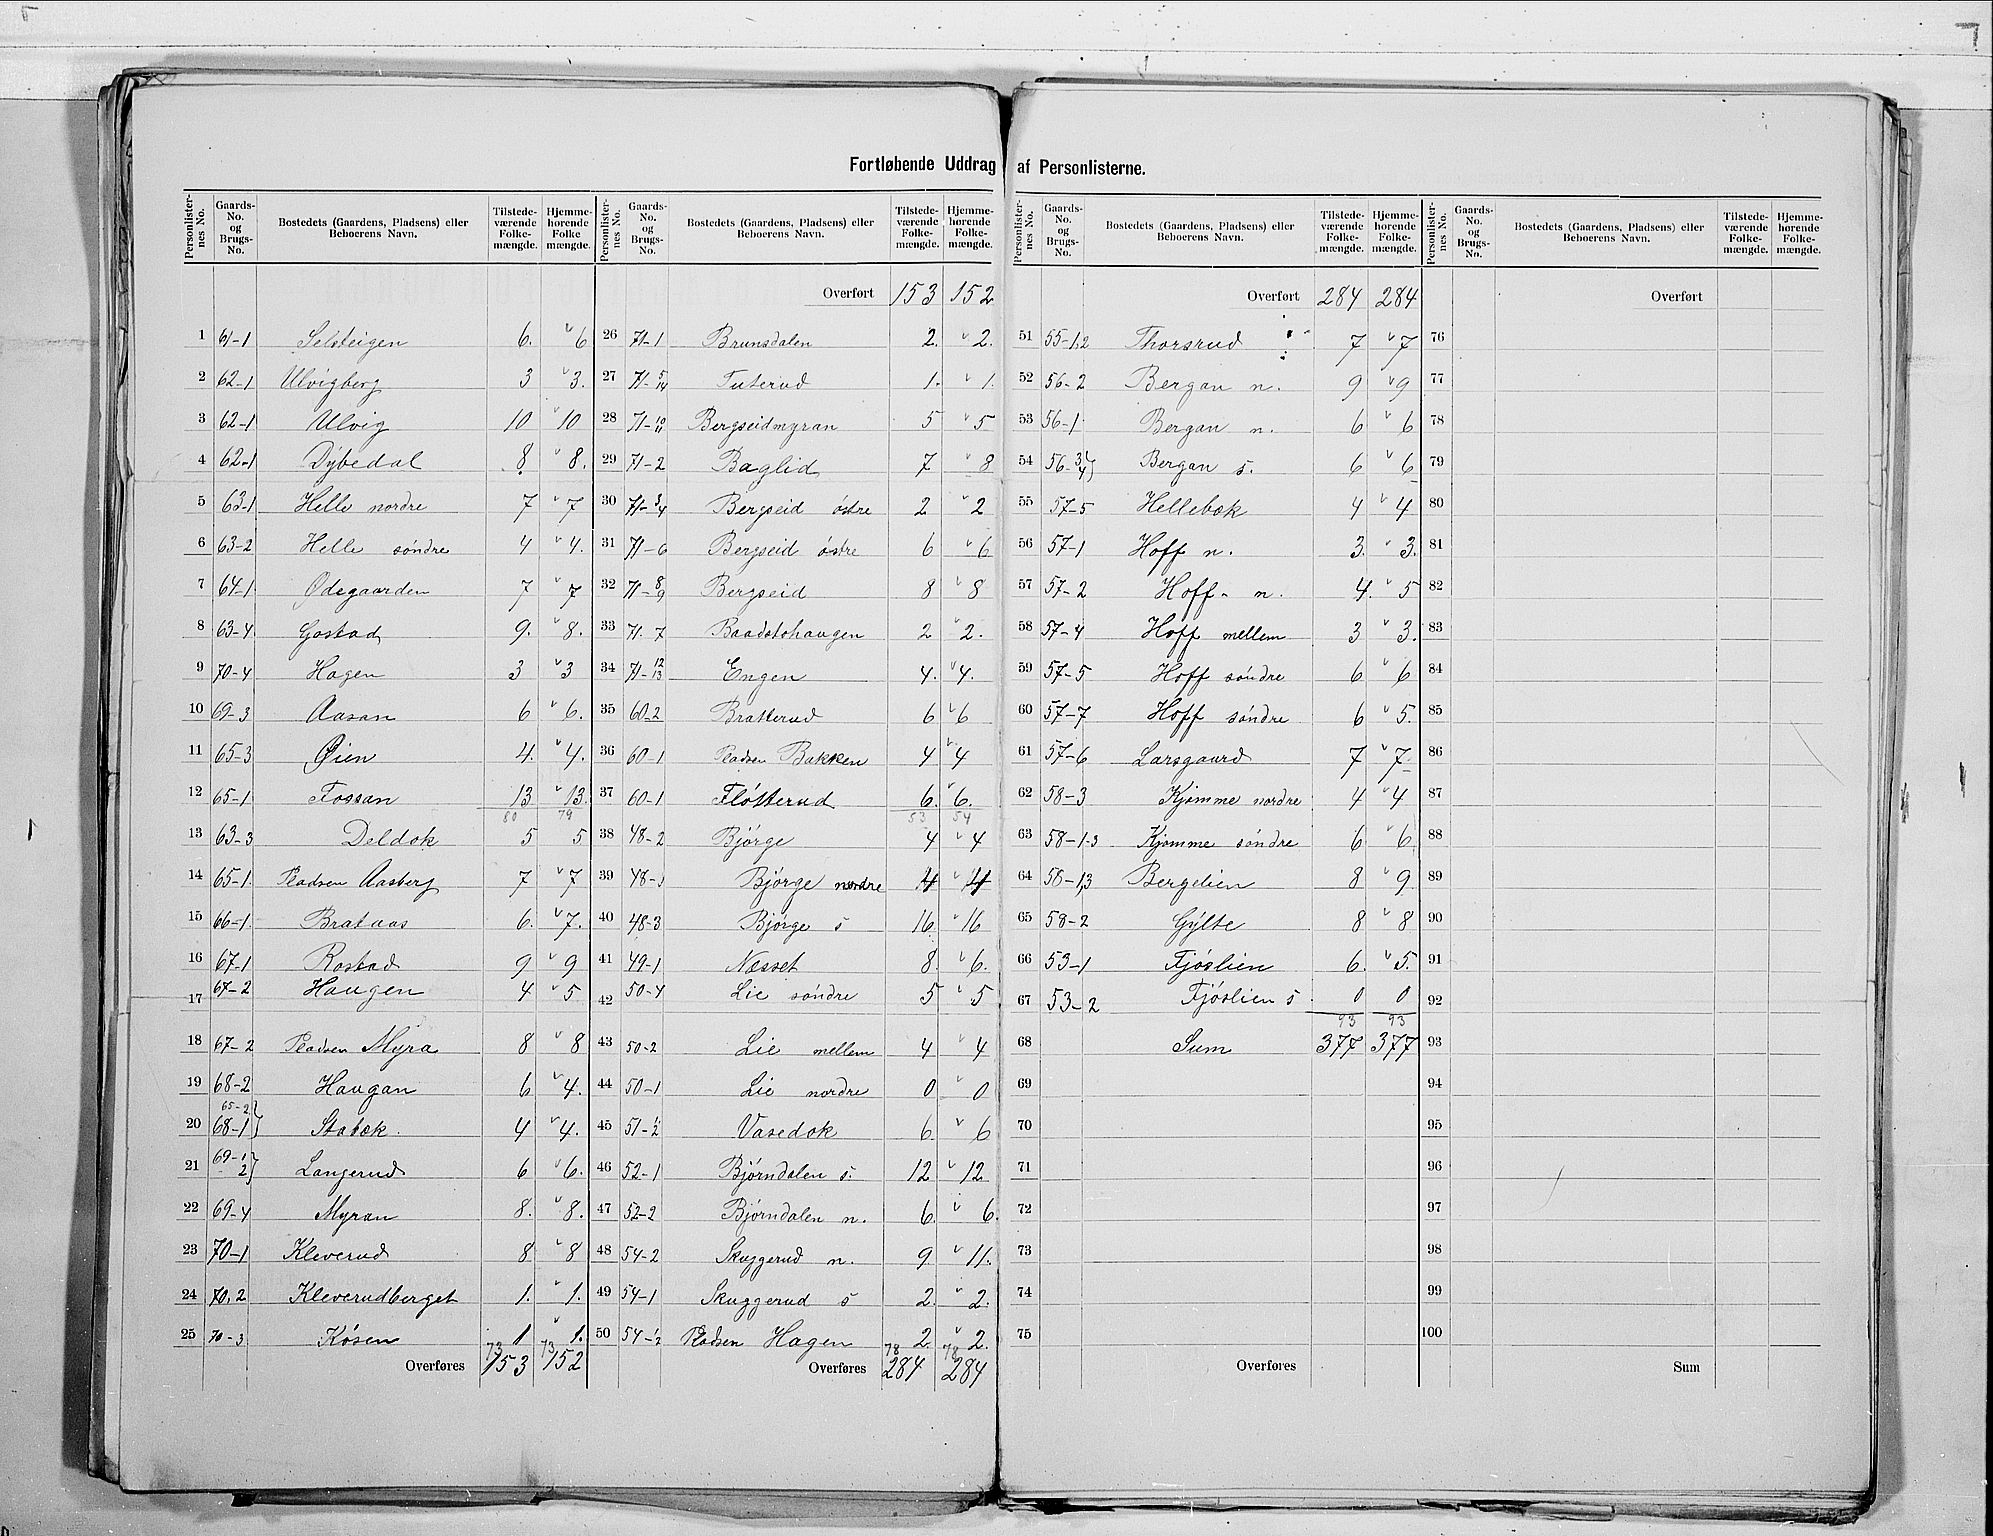 Fortløbende Uddrag af Personlisterne.
Personlister-nes No. Gaards-No. og Brugs-No. Bostedets (Gaardens, Pladsens) eller Beboerens Navn. Tilstede-værende Folke-mængde. Hjemme-hørende Folke-mængde.
1 61-1 Selsteigen 6. v 6
2 62-1 Ulvigberg 3 v 3.
3 62-1 Ulvig 10 v 10
4 62-1 Dybedal 8. v 8.
5 63-1 Helle nordre 7 v 7
6 63-2 Helle søndre 4 v 4.
7 64-1 Ødegaarden 7 v 7
8 63-4 Gostad 9. v 8.
9 70-4 Hagen 3 v 3
10 69-3 Aasan 6 v 6.
11 65-3 Øien 4. v 4.
12 65-1 Fossan 13 v 13.
80 79
13 63-3 Deldok 5 5
14 65-1. Pladsen Aasberg 7 v 7
15 66-1. Brataas 6. v 7.
16 67-1 Rostad 9 v 9
17 67-2 Haugen 4 v 5
18 67-2 Pladsen Myra 8 v 8
19 68-2 Haugan 6 v 4.
20 65-2 68-1 } Stabæk. 4 v 4.
21 69-1 -2 } Langerud 6 v 6.
22 69-4 Myran 8. v 8.
23 70-1 Kleverud 8 v 8
24 70,2 Kleverudberget 1. v 1.
25 70-3 Køsen 1 v 1.
73 73
Overføres 153 152
Personlister-nes No. Gaards-No. og Brugs-No. Bostedets (Gaardens, Pladsens) eller Beboerens Navn. Tilstede-værende Folke-mængde. Hjemme-hørende Folke-mængde.
Overført 153 152
26 71-1 Brunsdalen 2. v 2.
27 71-5/14 Tuterud 1. v 1.
28 71-10/11 Bergseidmyran 5 v 5
29 71-2 Baglid 7 v 8
30 71-3/4 Bergseid østre 2 v 2
31 71-6 Bergseid østre 6 v 6
32 71-8/9 Bergseid 8 v 8
33 71.7 Baadstohaugen 2 v 2.
34 71-12/13 Engen 4. v 4.
35 60-2 Bratterud 6 v 6
36 60-1 Pladsen Bakken 4 v 4
37 60-1 Fløtterud 6. v 6.
53 54
38 48-2 Bjørge 4 v 4
39 48-1 Bjørge nordre 4 v 4
40 48-3 Bjørge s 16 v 16
41 49-1 Næsset 8. v 6.
42 50-4 Lie søndre 5 v 5
43 50-2 Lie mellem 4 v 4
44 50-1 Lie nordre 0 v 0
45 51-1/2 Vasedok 6 v 6
46 52-1 Bjørndalen s. 12 v 12
47 52-2 Bjørndalen n. 6. v 6.
48 54-2 Skuggerud n. 9. v 11.
49 54-1 Skuggerud s 2. v 2.
50 54-1/2 Pladsen Hagen 2. v 2.
78 78
Overføres 284 284
Personlister-nes No. Gaards-No. og Brugs-No. Bostedets (Gaardens, Pladsens) eller Beboerens Navn. Tilstede-værende Folke-mængde. Hjemme-hørende Folke-mængde.
Overført 284 284
51 55-1,2 Thorsrud 7 v 7
52 56-2 Bergan n. 9 v 9
53 56-1 Bergan n. 6 v 6
54 56-3/4 } Bergan s. 6 v 6
55 57-5 Hellebæk 4 v 4
56 57-1 Hoff n. 3. v 3.
57 57-2 Hoff - n. 4. v 5
58 57-4 Hoff mellem 3 v 3.
59 57-5 Hoff søndre 6 v 6
60 57-7 Hoff søndre 6 v 5.
61 57-6 Larsgaard 7 v 7
62 58-3 Kjømme nordre 4 v 4
63 58-1.3 Kjømme søndre 6 v 6.
64 58-1,3 Bergelien 8 v 9.
65 58-2 Gylte 8 v 8
66 53-1 Fjøslien 6. v 5.
67 53-2 Fjøslien s. 0 0
93 93
68 Sum 377 377
69
70
71
72
73
74
75
Overføres
Personlister-nes No. Gaards-No. og Brugs-No. Bostedets (Gaardens, Pladsens) eller Beboerens Navn. Tilstede-værende Folke-mængde. Hjemme-hørende Folke-mængde.
Overført
76
77
78
79
80
81
82
83
84
85
86
87
88
89
90
91
92
93
94
95
96
97
98
99
100
Sum